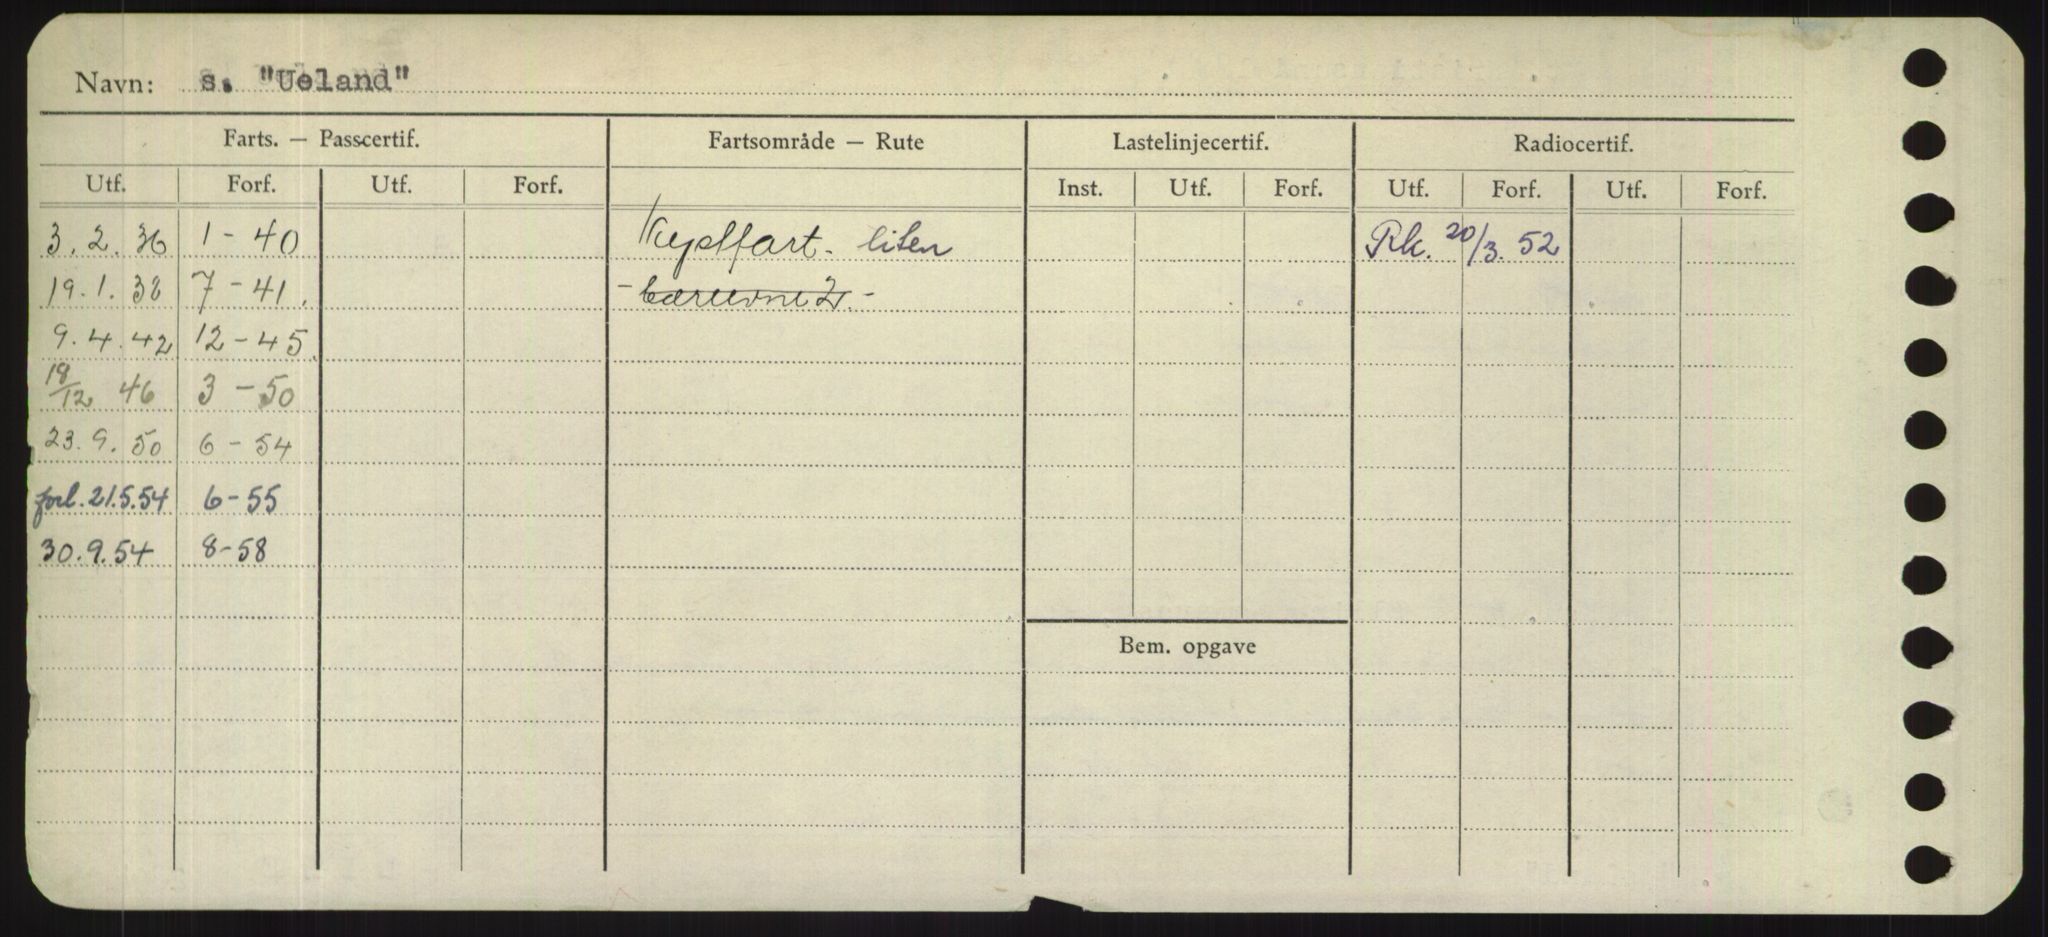 Navn: s. "Ueland"
Farts. — Passcertif. Fartsområde — Rute Lastelinjecertif. Radiocertif.
Utf. Forf. Utf. Forf. Inst. Utf. Forf. Utf. Forf. Utf. Forf.
3. 2. 36 1 - 40 Kystfart. liten Rk. 20/3. 52
19. 1. 38 7 - 41. - bæreevne 2. -
9. 4. 42 12 - 45.
18/12 46 3 - 50
23. 9. 50 6 - 54
forl. 21.5.54 6-55
30.9.54 8-58
Bem. opgave